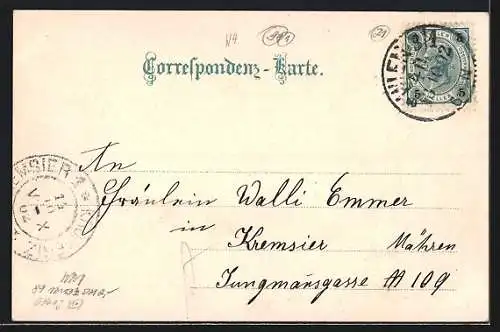 Correspondenz-Karte.
An
Fräulein Walli Emmer
in
Kremsier Mähren
Jungmansgasse A 109
KREMSIER